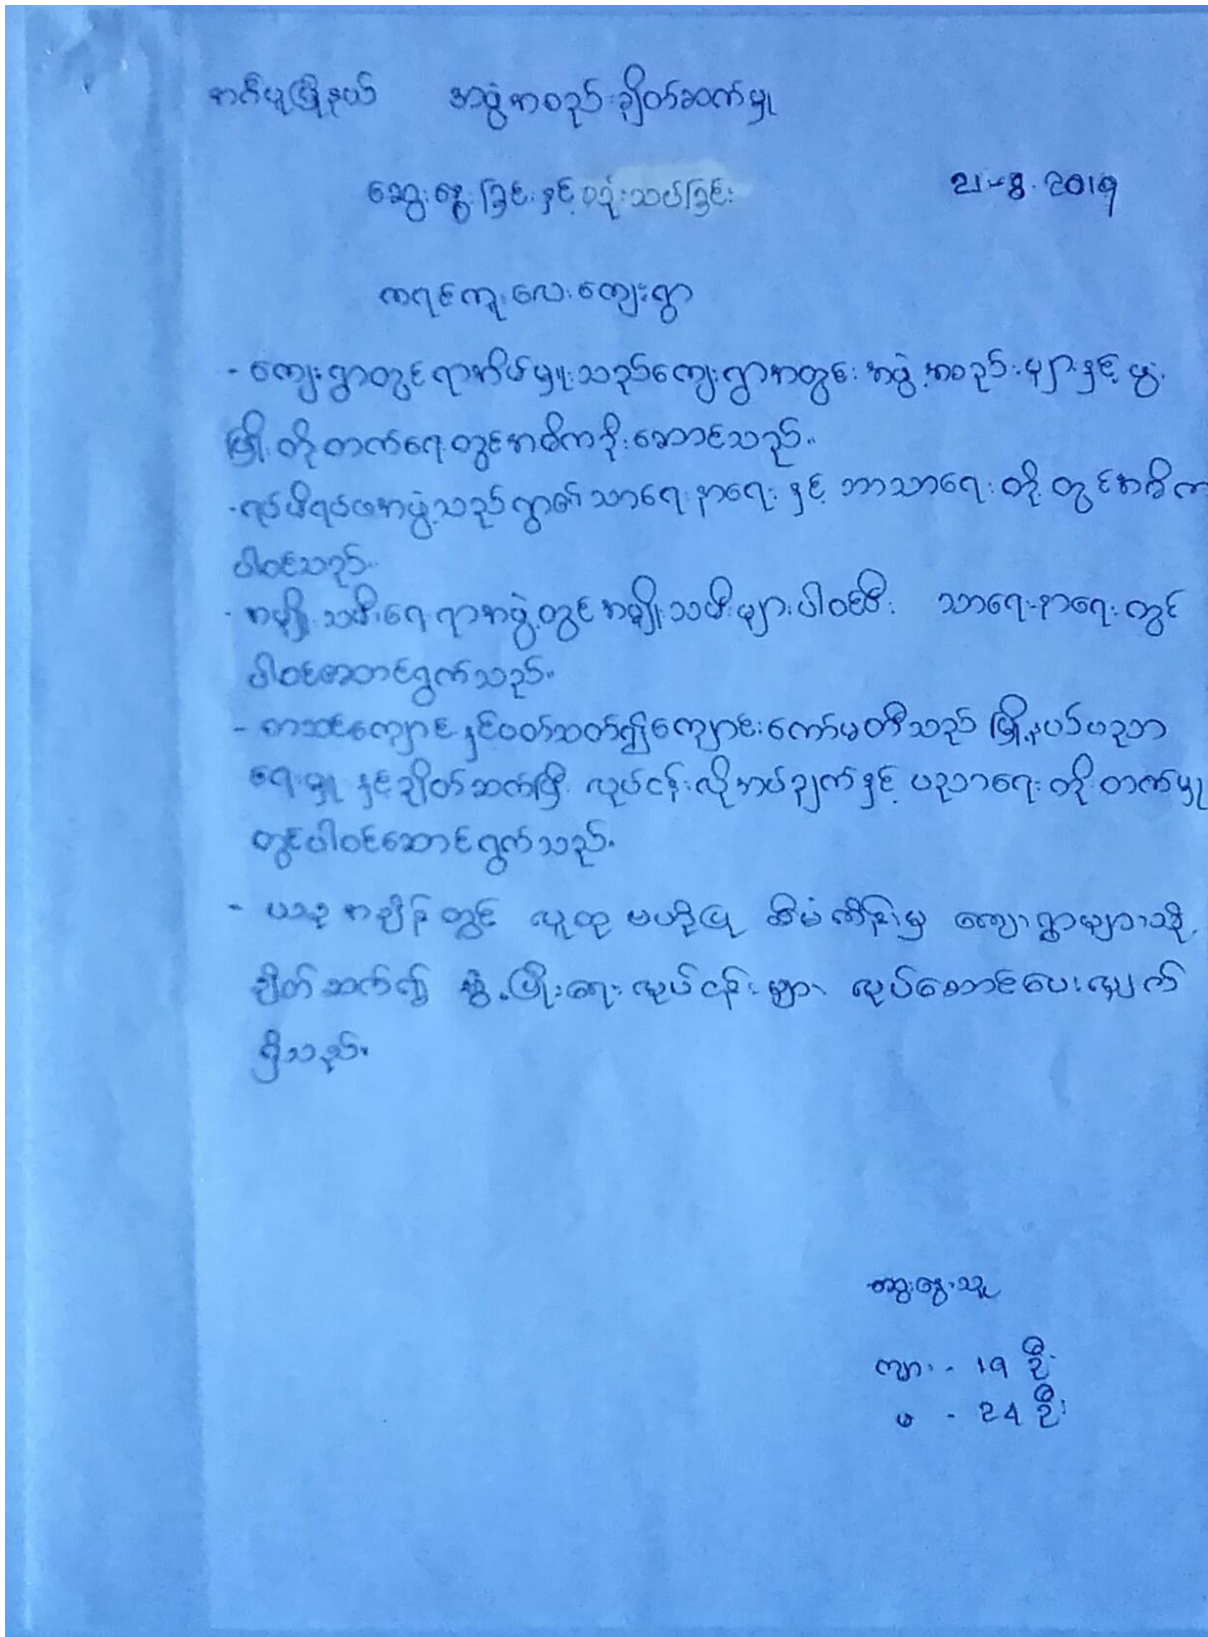 အင်္ဂပူမြို့နယ် အဖွဲ့အစည်းချိတ်ဆက်မှု
ဆွေးနွေးခြင်းနှင့် စည်းသပ်ခြင်း 21-8-2019
ကရင်ကူးလေးကျေးရွာ
- ကျေးရွာတွင် ရာအိမ်မှူးသည်ကျေးရွာအတွင်း အဖွဲ့အစည်းများနှင့် ဖွံ့
ဖြိုးတိုးတက်ရေးတွင်အဓိကဦးဆောင်သည်။
- ရပ်မိရပ်ဖအဖွဲ့သည်ရွာ၏သာရေးနာရေး နှင့် ဘာသာရေးတို့တွင်အဓိက
ပါဝင်သည်။
- အမျိုးသမီးရေးရာအဖွဲ့တွင်အမျိုးသမီးများပါဝင်ပြီး သာရေး-နာရေးတွင်
ပါဝင်ဆောင်ရွက်သည်။
- စာသင်ကျောင်းနှင့်ပတ်သတ်၍ကျောင်းကော်မတီသည် မြို့နယ်ပညာ
ရေးမှူးနှင့်ချိတ်ဆက်ပြီး လုပ်ငန်းလိုအပ်ချက်နှင့် ပညာရေးတိုးတက်မှု
တွင်ပါဝင်ဆောင်ရွက်သည်။
- ယခုအချိန်တွင် လူထုဗဟိုပြု စီမံကိန်းမှ ကျေးရွာများသို့
ချိတ်ဆက်၍ ဖွံ့ဖြိုးရေးလုပ်ငန်းများ လုပ်ဆောင်ပေးလျက်
ရှိသည်။
ဆွေးနွေးသူ
ကျား - 19 ဦး
မ - 24 ဦး